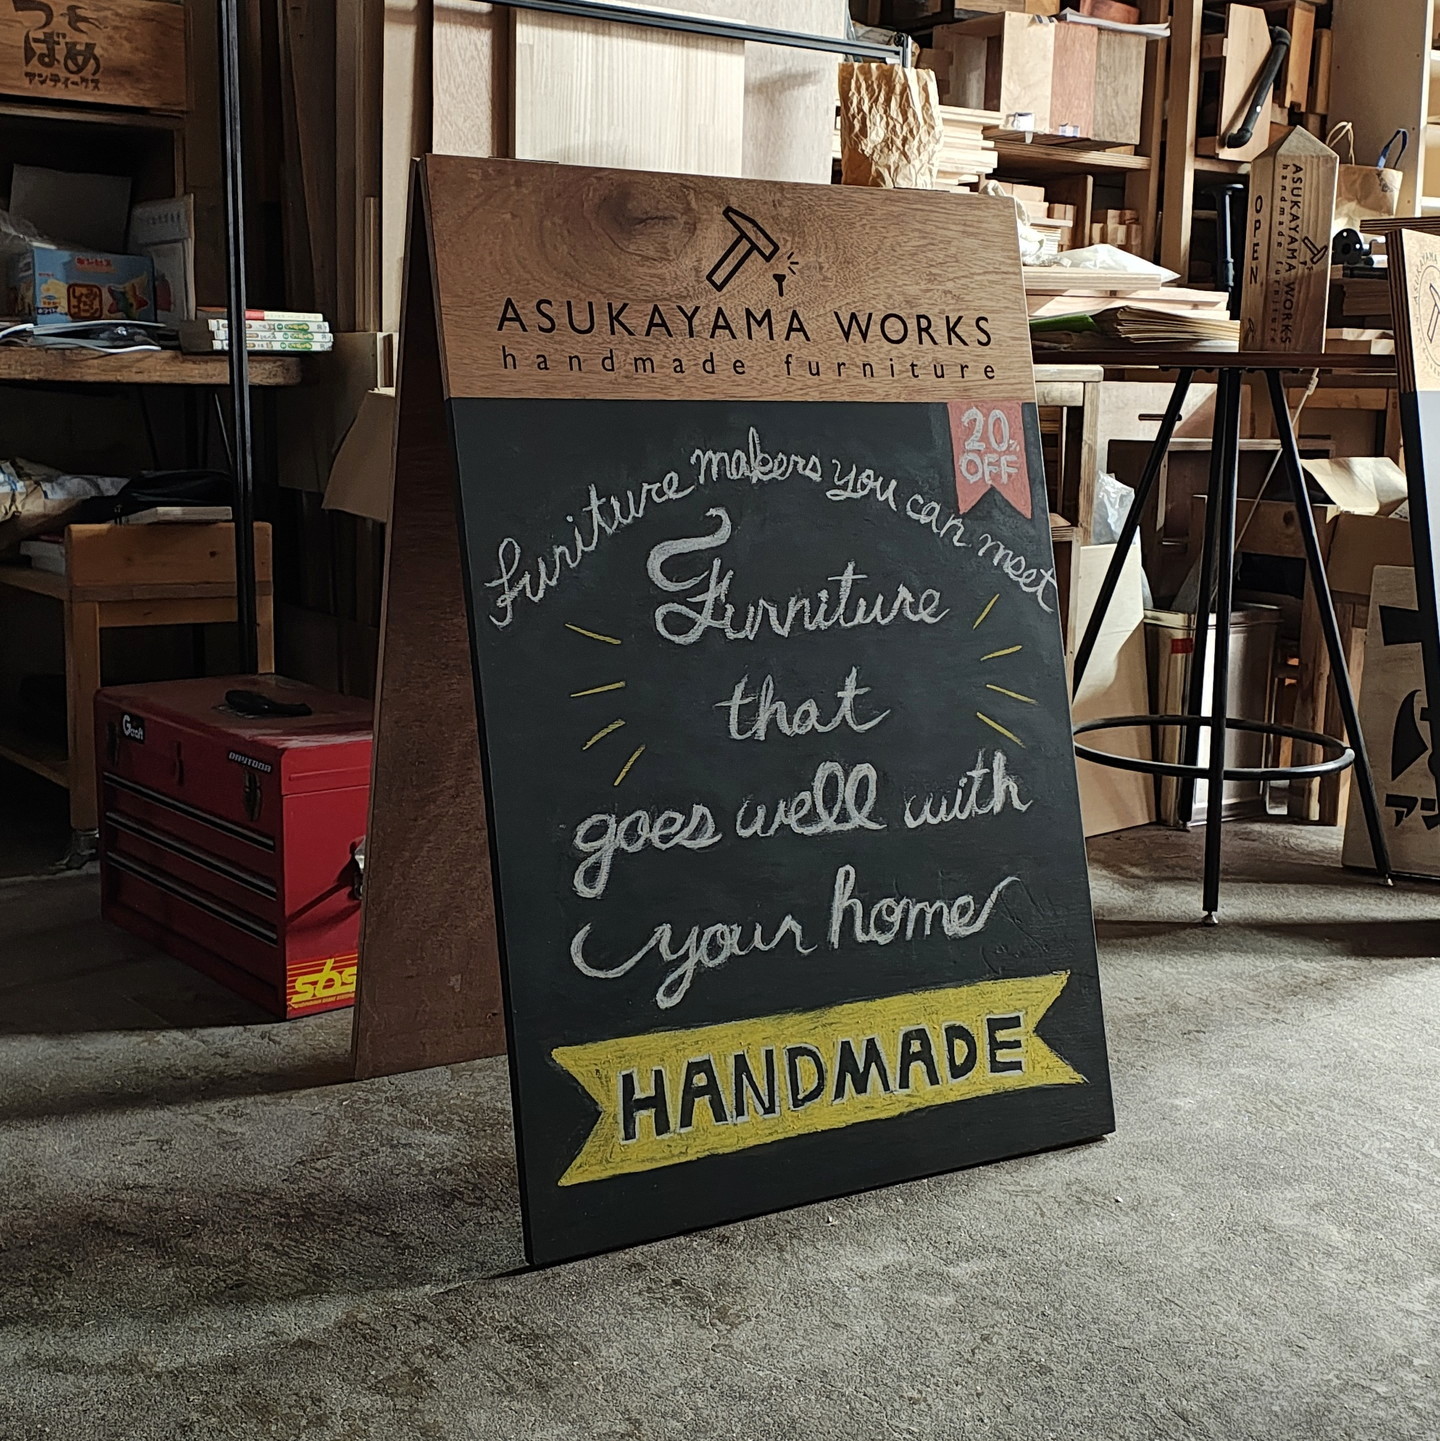 つばめ
アンティークス
ASUKAYAMA WORKS
handmade furniture
20% OFF
Furniture makers you can meet
Furniture
that
goes well with
your home
HANDMADE
OPEN
ASUKAYAMA WORKS
handmade furniture
DAYTONA
sbs